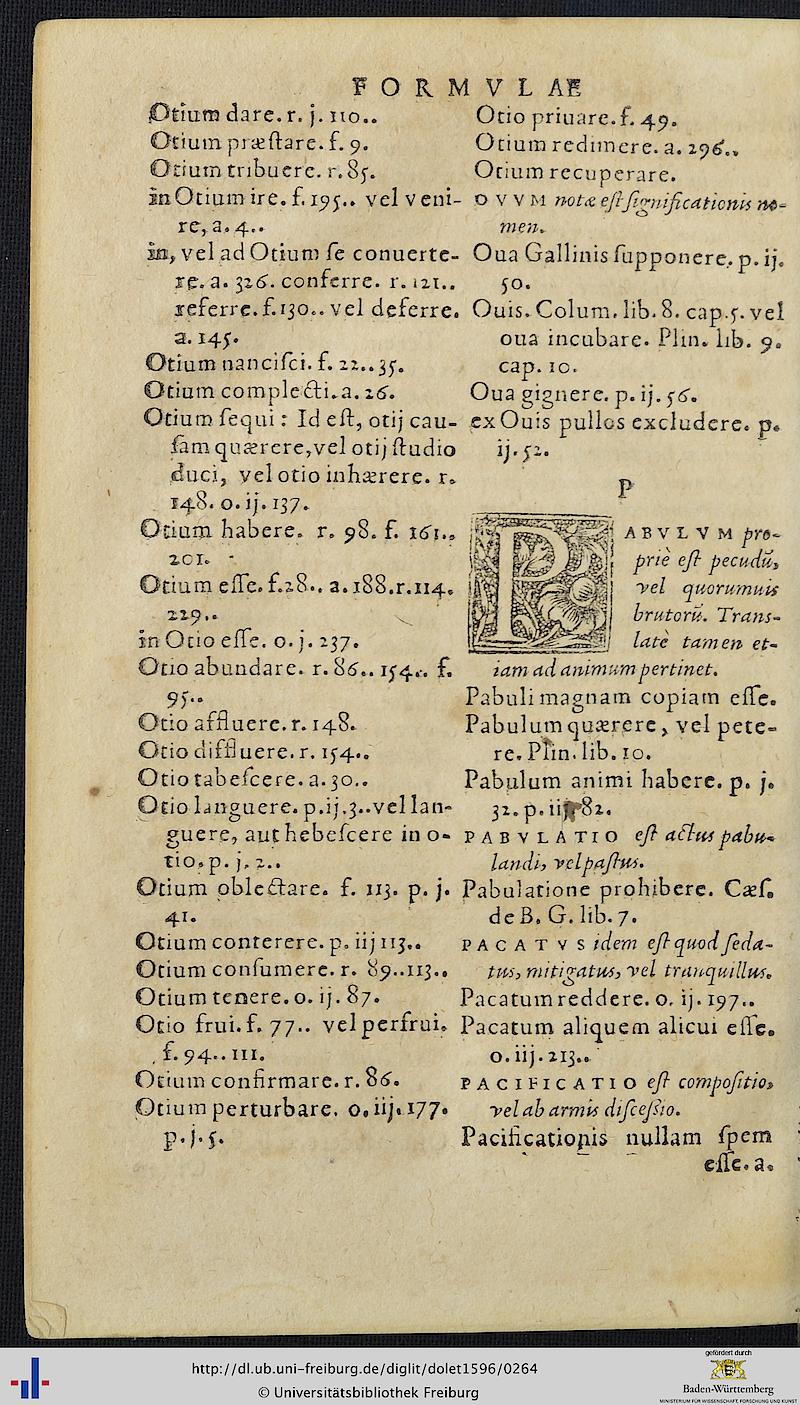 FORMVLAE
Otium dare. r. j. 110..
Otium præſtare. f. 9.
Otium tribuere. r. 85.
in Otium ire. f. 195.. vel veni-
re, a. 4..
in, vel ad Otium ſe conuerte-
re. a. 326. conferre. r. 121..
referre. f. 130.. vel deferre.
a. 145.
Otium nanciſci. f. 22..35.
Otium complecti. a. 26.
Otium ſequi: Id eſt, otij cau-
ſam quærere, vel otij ſtudio
duci, vel otio inhærere. r.
148. o. ij. 137.
Otium habere. r. 98. f. 161..
201.
Otium eſſe. f. 28.. a. 188. r. 114.
229..
in Otio eſſe. o. j. 237.
Otio abundare. r. 86.. 154.. f.
95..
Otio affluere. r. 148.
Otio diffluere. r. 154..
Otio tabeſcere. a. 30..
Otio languere. p. ij. 3.. vel lan-
guere, aut hebeſcere in o-
tio. p. j. 2..
Otium oblectare. f. 113. p. j.
41.
Otium conterere. p. iij 113..
Otium conſumere. r. 89..113..
Otium tenere. o. ij. 87.
Otio frui. f. 77.. vel perfrui.
f. 94..111.
Otium confirmare. r. 86.
Otium perturbare. o. iij. 177.
p. j. 5.
Otio priuare. f. 49.
Otium redimere. a. 296..
Otium recuperare.
OVVM notæ eſt ſignificationis no-
men.
Oua Gallinis ſupponere. p. ij.
50.
Ouis. Colum. lib. 8. cap. 5. vel
oua incubare. Plin. lib. 9.
cap. 10.
Oua gignere. p. ij. 56.
ex Ouis pullos excludere. p.
ij. 52.
P
PABVLVM pro-
priè eſt pecudũ,
vel quorumuis
brutorũ. Trans-
latè tamen et-
iam ad animum pertinet.
Pabuli magnam copiam eſſe.
Pabulum quærere, vel pete-
re. Plin. lib. 10.
Pabulum animi habere. p. j.
32. p. iij. 82.
PABVLATIO eſt actus pabu-
landi, vel paſtus.
Pabulatione prohibere. Cæſ.
de B. G. lib. 7.
PACATVS idem eſt quod ſeda-
tus, mitigatus, vel tranquillus.
Pacatum reddere. o. ij. 197..
Pacatum aliquem alicui eſſe.
o. iij. 213..
PACIFICATIO eſt compoſitio,
vel ab armis diſceſsio.
Pacificationis nullam ſpem
eſſe. a.
http://dl.ub.uni-freiburg.de/diglit/dolet1596/0264
© Universitätsbibliothek Freiburg
gefördert durch
Baden-Württemberg
MINISTERIUM FÜR WISSENSCHAFT, FORSCHUNG UND KUNST